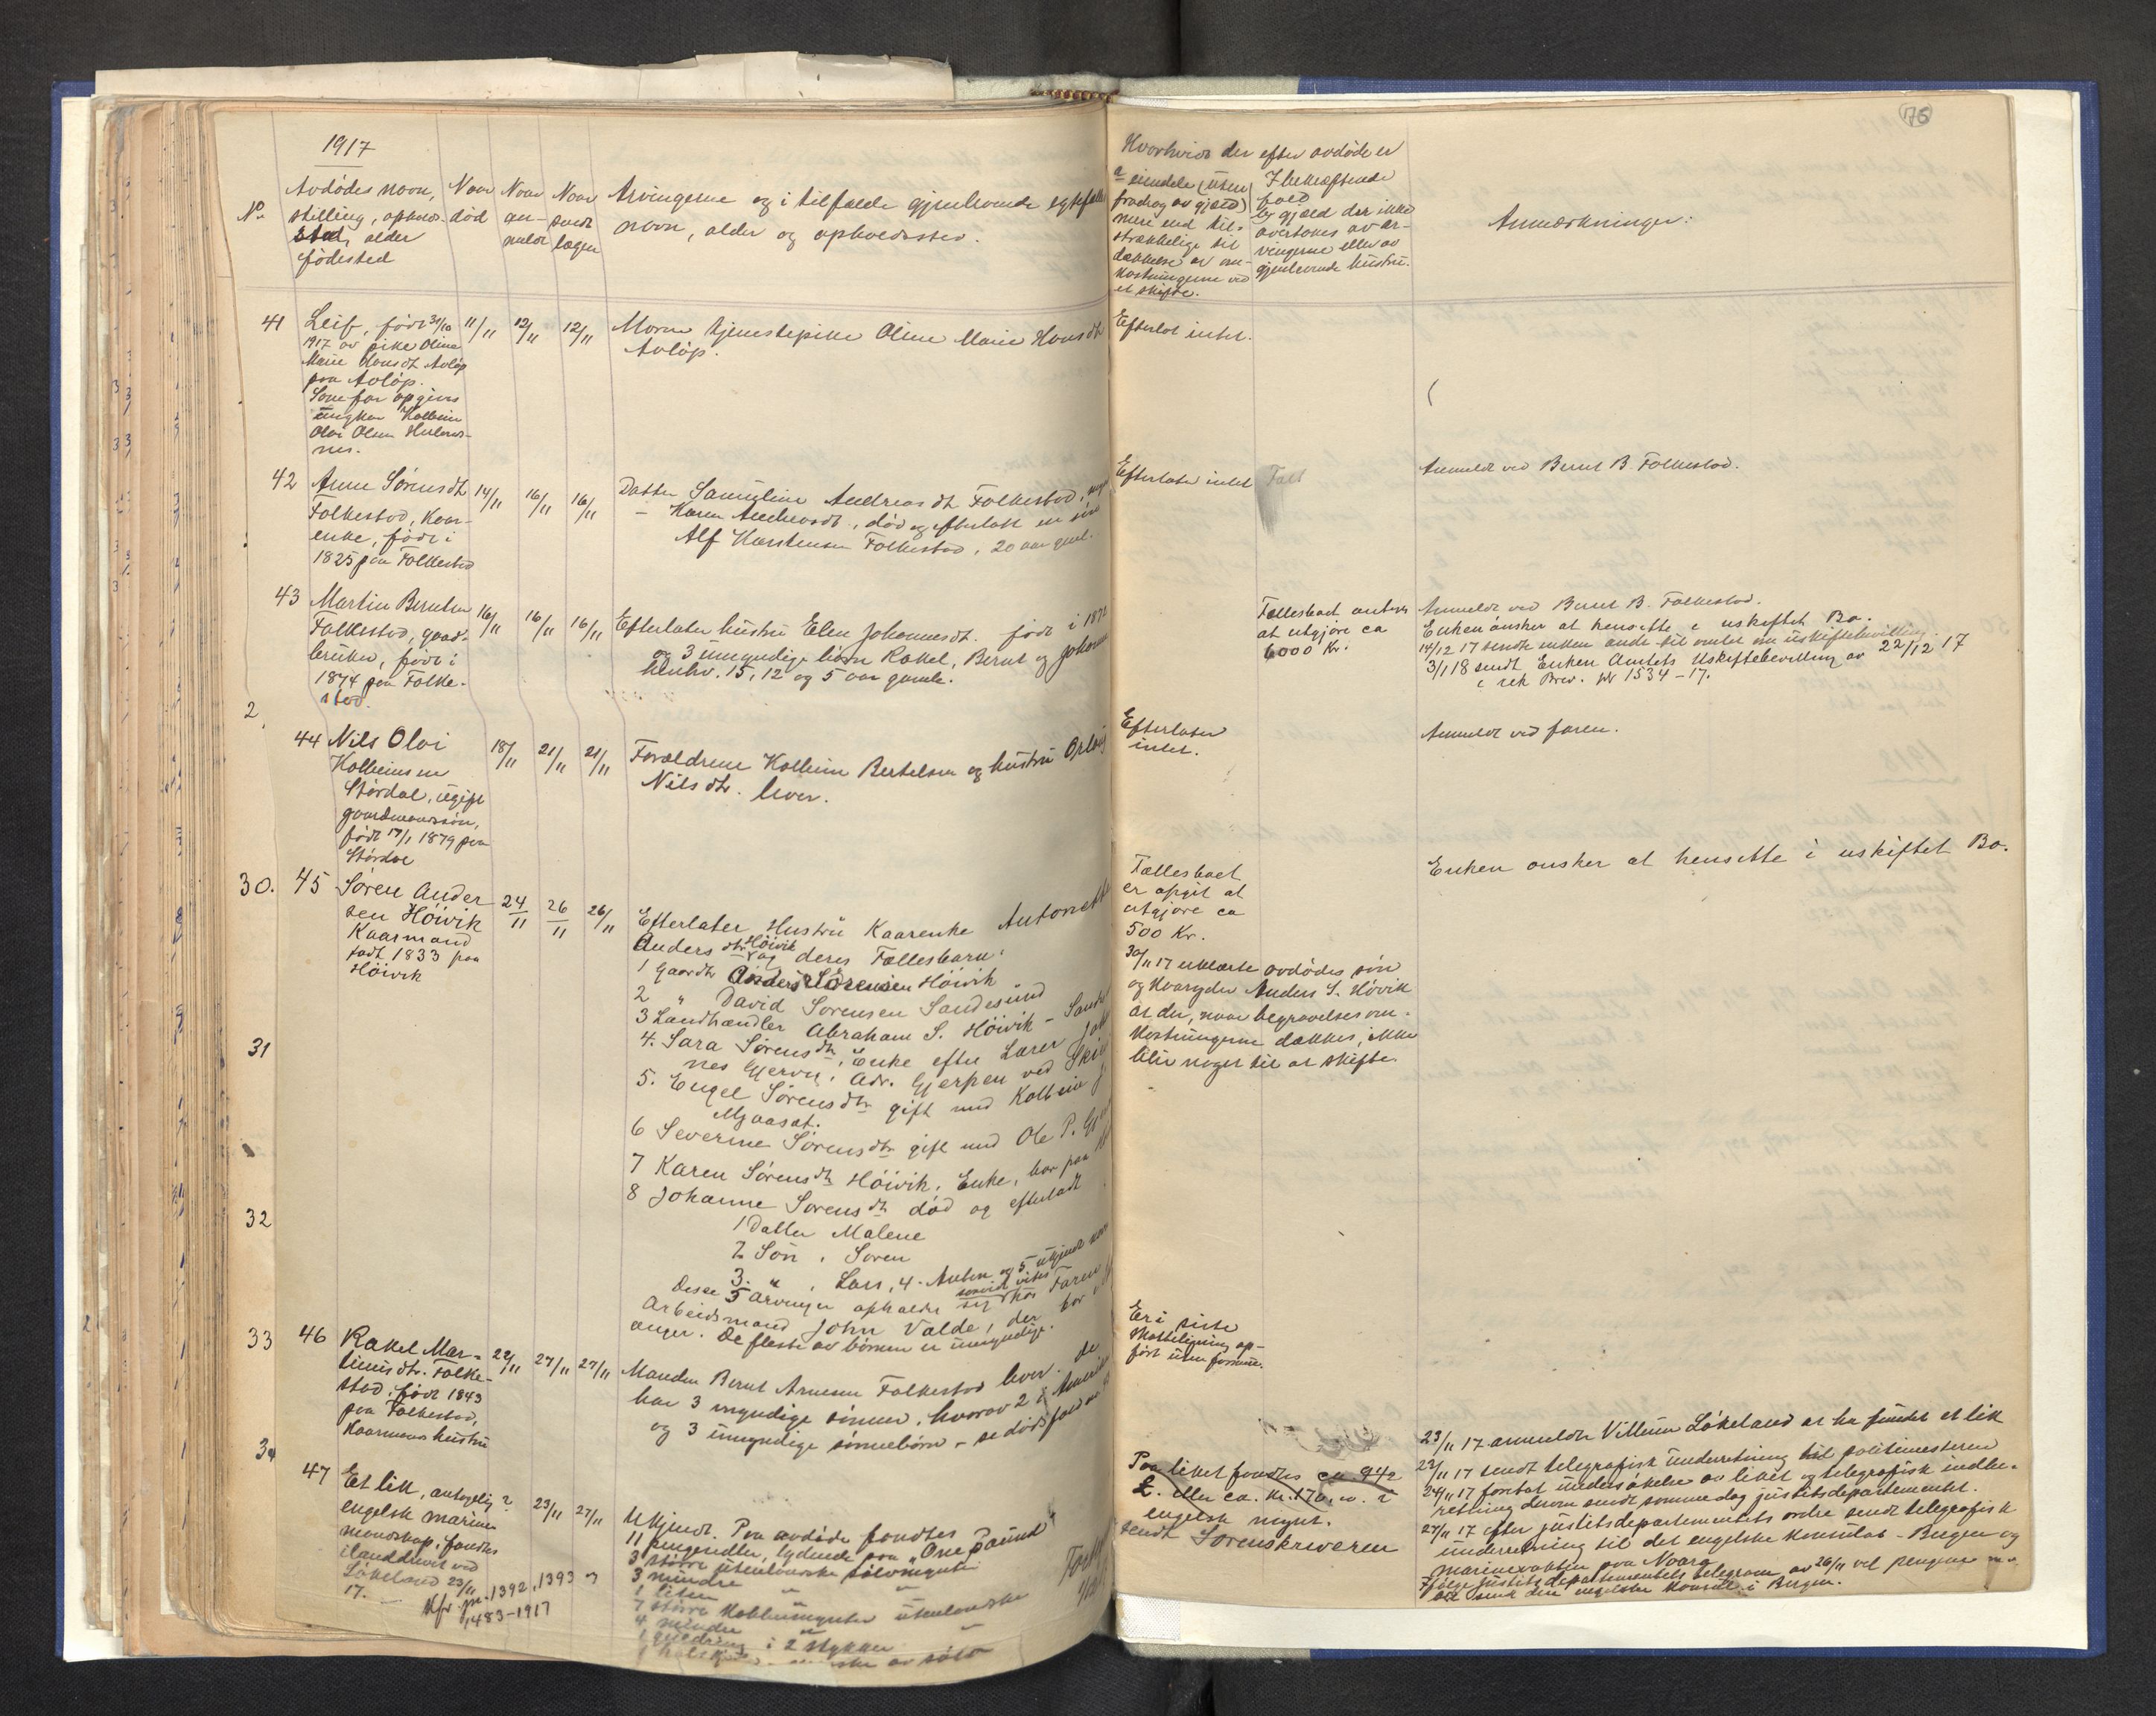 1917
No
Avdødes navn,
stilling, opholds-
sted, alder
fødested
Naar
død
Naar
an-
meldt
Naar
avert
lagen
Arvingerne og i tilfælde gjenlevende egtefælle
navn, alder og opholdssted.
Hvorhvidt der efter avdøde er
a eiendele (uten
fradrag av gjæld)
mere end til-
strækkelige til
dækkelse av om-
kostningerne ved
et skifte.
I bekræftende
fald
b) gjæld der ikke
overtakes av ar-
vingerne eller av
gjenlevende hustru.
Anmerkninger:
176
41
Leif, født 31/10
1917 av pike Oline
Marie Hansdt Avløp
paa Avløp.
Som far opgives
ungkar Kolbein
Olai Olsen
nes.
11/11
12/11
12/11
Moren tjenestepike Oline Marie Hansdt
Avløp.
Efterlot intet.
42
Anne Sørensdt
Folkestad, Kaar-
enke, født i
1825 paa Folkestad
14/11
16/11
16/11
Datter Samueline Andreasdt Folkestad,
- Karen Andreasdt, død og efterlatt en søn
Alf Karstensen Folkestad, 20 aar gml.
Efterlater intet
Anmeldt ved Bernt B. Folkestad.
43
Martin Berntsen
Folkestad, gaard-
bruker, født i
1874 paa Folke-
stad.
16/11
16/11
16/11
Efterlater hustru Elen Johannesdt. født i 1872
og 3 umyndige børn Rakel, Bernt og Johan
henhv. 15, 12 og 5 aar gamle.
Fællesboet antas
at utgjøre ca
6000 Kr.
Anmeldt ved Bernt B. Folkestad.
Enken ønsker at hensitte i uskiftet Bo.
14/12 17 sendt enken til amtet om uskiftebevilling.
3/1 18 sendt Enken Amtets Uskiftebevilling av 22/12 17
i rek Brev. Nr 1534-17.
2
44
Nils Olai
Kolbeinsen
Størdal, ugift
gaardmandssøn,
født 17/1 1879 paa
Størdal
18/11
21/11
21/11
Forældrene Kolbein Bertelsen og hustru
Nilsdtr. lever.
Efterlater
intet.
Anmeldt ved faren.
30.
45
Søren Ander
sen Höivik
Kaarmand
født 1833 paa
Höivik
24/11
26/11
26/11
Efterlater Hustru Kaarenke Antonette
Andersdtr Höivik og deres Fællesbarn:
1 Gaardbr Anders Sørensen Höivik
2 " David Sorensen Sandesund
3 Landhandler Abraham S. Höivik - Sande
4. Sara Sørensdtr, Enke efter Lærer Joh
nes Gjervu, Adr. Gjerpen ved Skien
5. Engel Sørensdtr gift med Kolbein J
Myaasat.
6 Severine Sørensdtr gift med Ole P.
7 Karen Sørensdtr Höivik, Enke, bor paa
8 Johanne Sorensdtr død og efterladt
1 Datter Malene
2 Søn, Soren
3. " , Lars, 4. Anton og 5 ukjendt navn
Disse 5 arvinger opholder sig saavidt vites hos Faren
Arbeidsmand John Valde, der bor
anger. De fleste av børnene er umyndige.
Fællesboet
er opgit at
utgjøre ca
500 Kr.
30/11 17 erklærte avdødes søn
og Kaaryder Anders S. Høivik
at der, naar begravelsesom-
kostningerne dækkes, ikke
blir noget til at skifte.
Enken ønsker at hensitte i uskiftet Bo.
31
32
33
46
Rakel Mar-
tinusdtr. Folke-
stad, født 1843
paa Folkestad,
Kaarmans hustru
22/11
27/11
27/11
Manden Bernt Arnesen Folkestad lever. De
har 3 myndige sønner, hvorav 2 i Amerika
og 3 umyndige sønnebørn - se dødsfald nr
Er i siste
skatteligning op-
ført uten formue.
34
47
Et lik, antagelig
engelsk marine
mandskap, fandtes
ilanddrevet ved
Løkeland 23/11
17.
Kfr. jnr. 1392, 1393 og
1483-1917
?
23/11
27/11
Ukjendt. Paa avdøde fandtes
11 pengesedler, lydende paa "One Pound"
3 større utenlandske sølvmynter
3 mindre " "
1 liten " "
7 større Kobbermynter utenlandske
4 mindre " "
1 guldring i 2 stykker
av sølv
Paa liket fandtes ca 9 1/2
£. eller ca. Kr. 170,00 i
engelsk mynt.
Sendt Sorenskriveren
23/11 17 anmeldte Villum Løkeland at ha fundet et lik
23/11 17 sendt telegrafisk underretning til politimesteren
24/11 17 foretat undersøkelse av liket og telegrafisk indbe-
retning derom sendt samme dag justitsdepartementet.
27/11 17 efter justitsdepartementets ordre sendt telegrafisk
underretning til det engelske Konsulat - Bergen og
marinevakten paa Naara
Ifølge justitsdepartementets telegram av 26/11 vil pengene m.v.
bli sendt den engelske Konsul i Bergen.